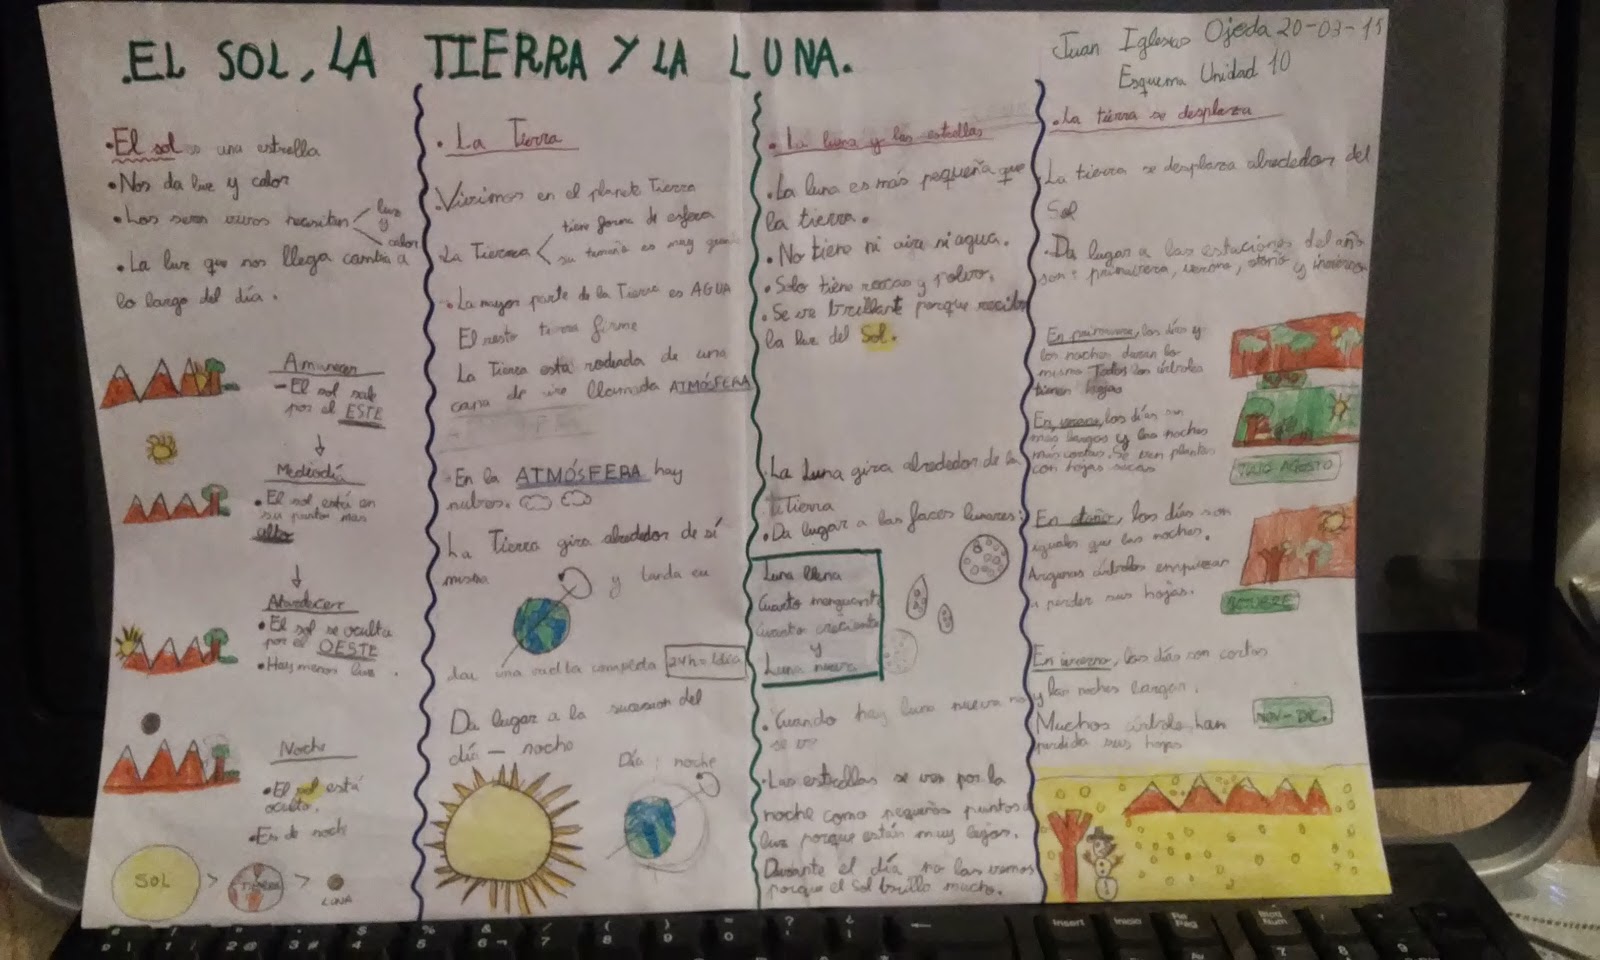 .EL SOL, LA TIERRA Y LA LUNA.
Juan Iglesias Ojeda 20-03-15
Esquema Unidad 10
• El sol es una estrella
• Nos da luz y calor
• Los seres vivos necesitan luz
y
calor
• La luz que nos llega cambia a
lo largo del día.
Amanecer
- El sol sale
por el ESTE
Mediodía
• El sol está en
su punto mas
alto
Atardecer
• El sol se oculta
por el OESTE
• Hay menos luz.
Noche
• El sol está
oculto.
• Es de noche
SOL > TIERRA > LUNA
• La Tierra
Vivimos en el planeta Tierra
La Tierra tiene forma de esfera
su tamaño es muy grande
• La mayor parte de la Tierra es AGUA
El resto tierra firme
La Tierra está rodeada de una
capa de aire llamada ATMÓSFERA
• En la ATMÓSFERA hay
nubes.
La Tierra gira alrededor de sí
misma y tarda en
dar una vuelta completa 24h = 1día
Da lugar a la sucesion del
día - noche
Día : noche
• La luna y las estrellas
• La luna es más pequeña que
la tierra.
• No tiene ni aire ni agua.
• Solo tiene rocas y polvo.
• Se ve brillante porque recibe
la luz del Sol.
La Luna gira alrededor de la
Tierra
• Da lugar a las faces lunares:
Luna llena
Cuarto menguante
Cuarto creciente
y
Luna nueva
• Cuando hay luna nueva no
se ve
• Las estrellas se ven por la
noche como pequeños puntos
luz porque están muy lejos.
Durante el día no las vemos
porque el Sol brilla mucho.
• La tierra se desplaza
La tierra se desplaza alrededor del
Sol
• Da lugar a las estaciones del año
son: primavera, verano, otoño y invierno
En primavera, los días y
las noches duran lo
mismo Todos los árboles
tienen hojas
En verano, los días son
más largos y las noches
más cortas. Se ven plantas
con hojas secas
JULIO AGOSTO
En otoño, los días son
iguales que las noches.
Algunos árboles empiezan
a perder sus hojas.
OCTUBRE
En invierno, los días son cortos
y las noches largas.
Muchos árboles han
perdido sus hojas
NOV-DIC.
Insert
Inicio
Re
Pag
Bloq
Num